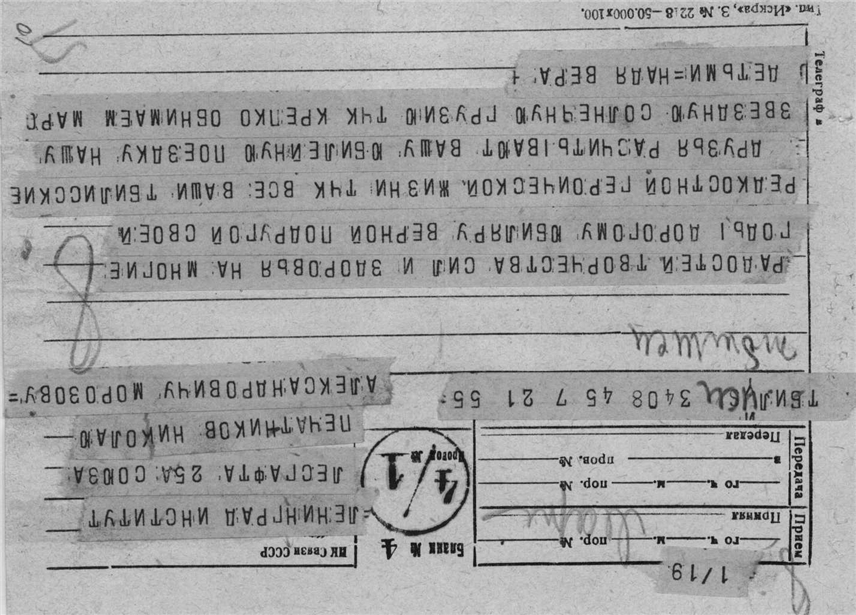 1/19
НК Связи СССР
Бланк № 4
Прием
го ч. м. пор. №
Принял
Передача
го ч. м. пор. №
в пров. №
Передал
Провод №
4/1
ЛЕНИНГРАД ИНСТИТУТ
ЛЕСГАФТА 25А СОЮЗА
ПЕЧАТНИКОВ НИКОЛАЮ
АЛЕКСАНДРОВИЧУ МОРОЗОВУ=
ТБИЛИСИ 3408 45 7 21 55=
РАДОСТЕЙ ТВОРЧЕСТВА СИЛ И ЗДОРОВЬЯ НА МНОГИЕ
ГОДЫ ДОРОГОМУ ЮБИЛЯРУ ВЕРНОЙ ПОДРУГОЙ СВОЕЙ
РЕДКОСТНОЙ ГЕРОИЧЕСКОЙ ЖИЗНИ ТЧК ВСЕ ВАШИ ТБИЛИССКИЕ
ДРУЗЬЯ РАСЧИТЫВАЮТ ВАШУ ЮБИЛЕЙНУЮ ПОЕЗДКУ НАШУ
ЗВЕЗДНУЮ СОЛНЕЧНУЮ ГРУЗИЮ ТЧК КРЕПКО ОБНИМАЕМ МАРО
ДЕТЬМИ=НАДЯ ВЕРА +
Телеграф в
Тип. «Искра», З. № 2218—50.000х100.